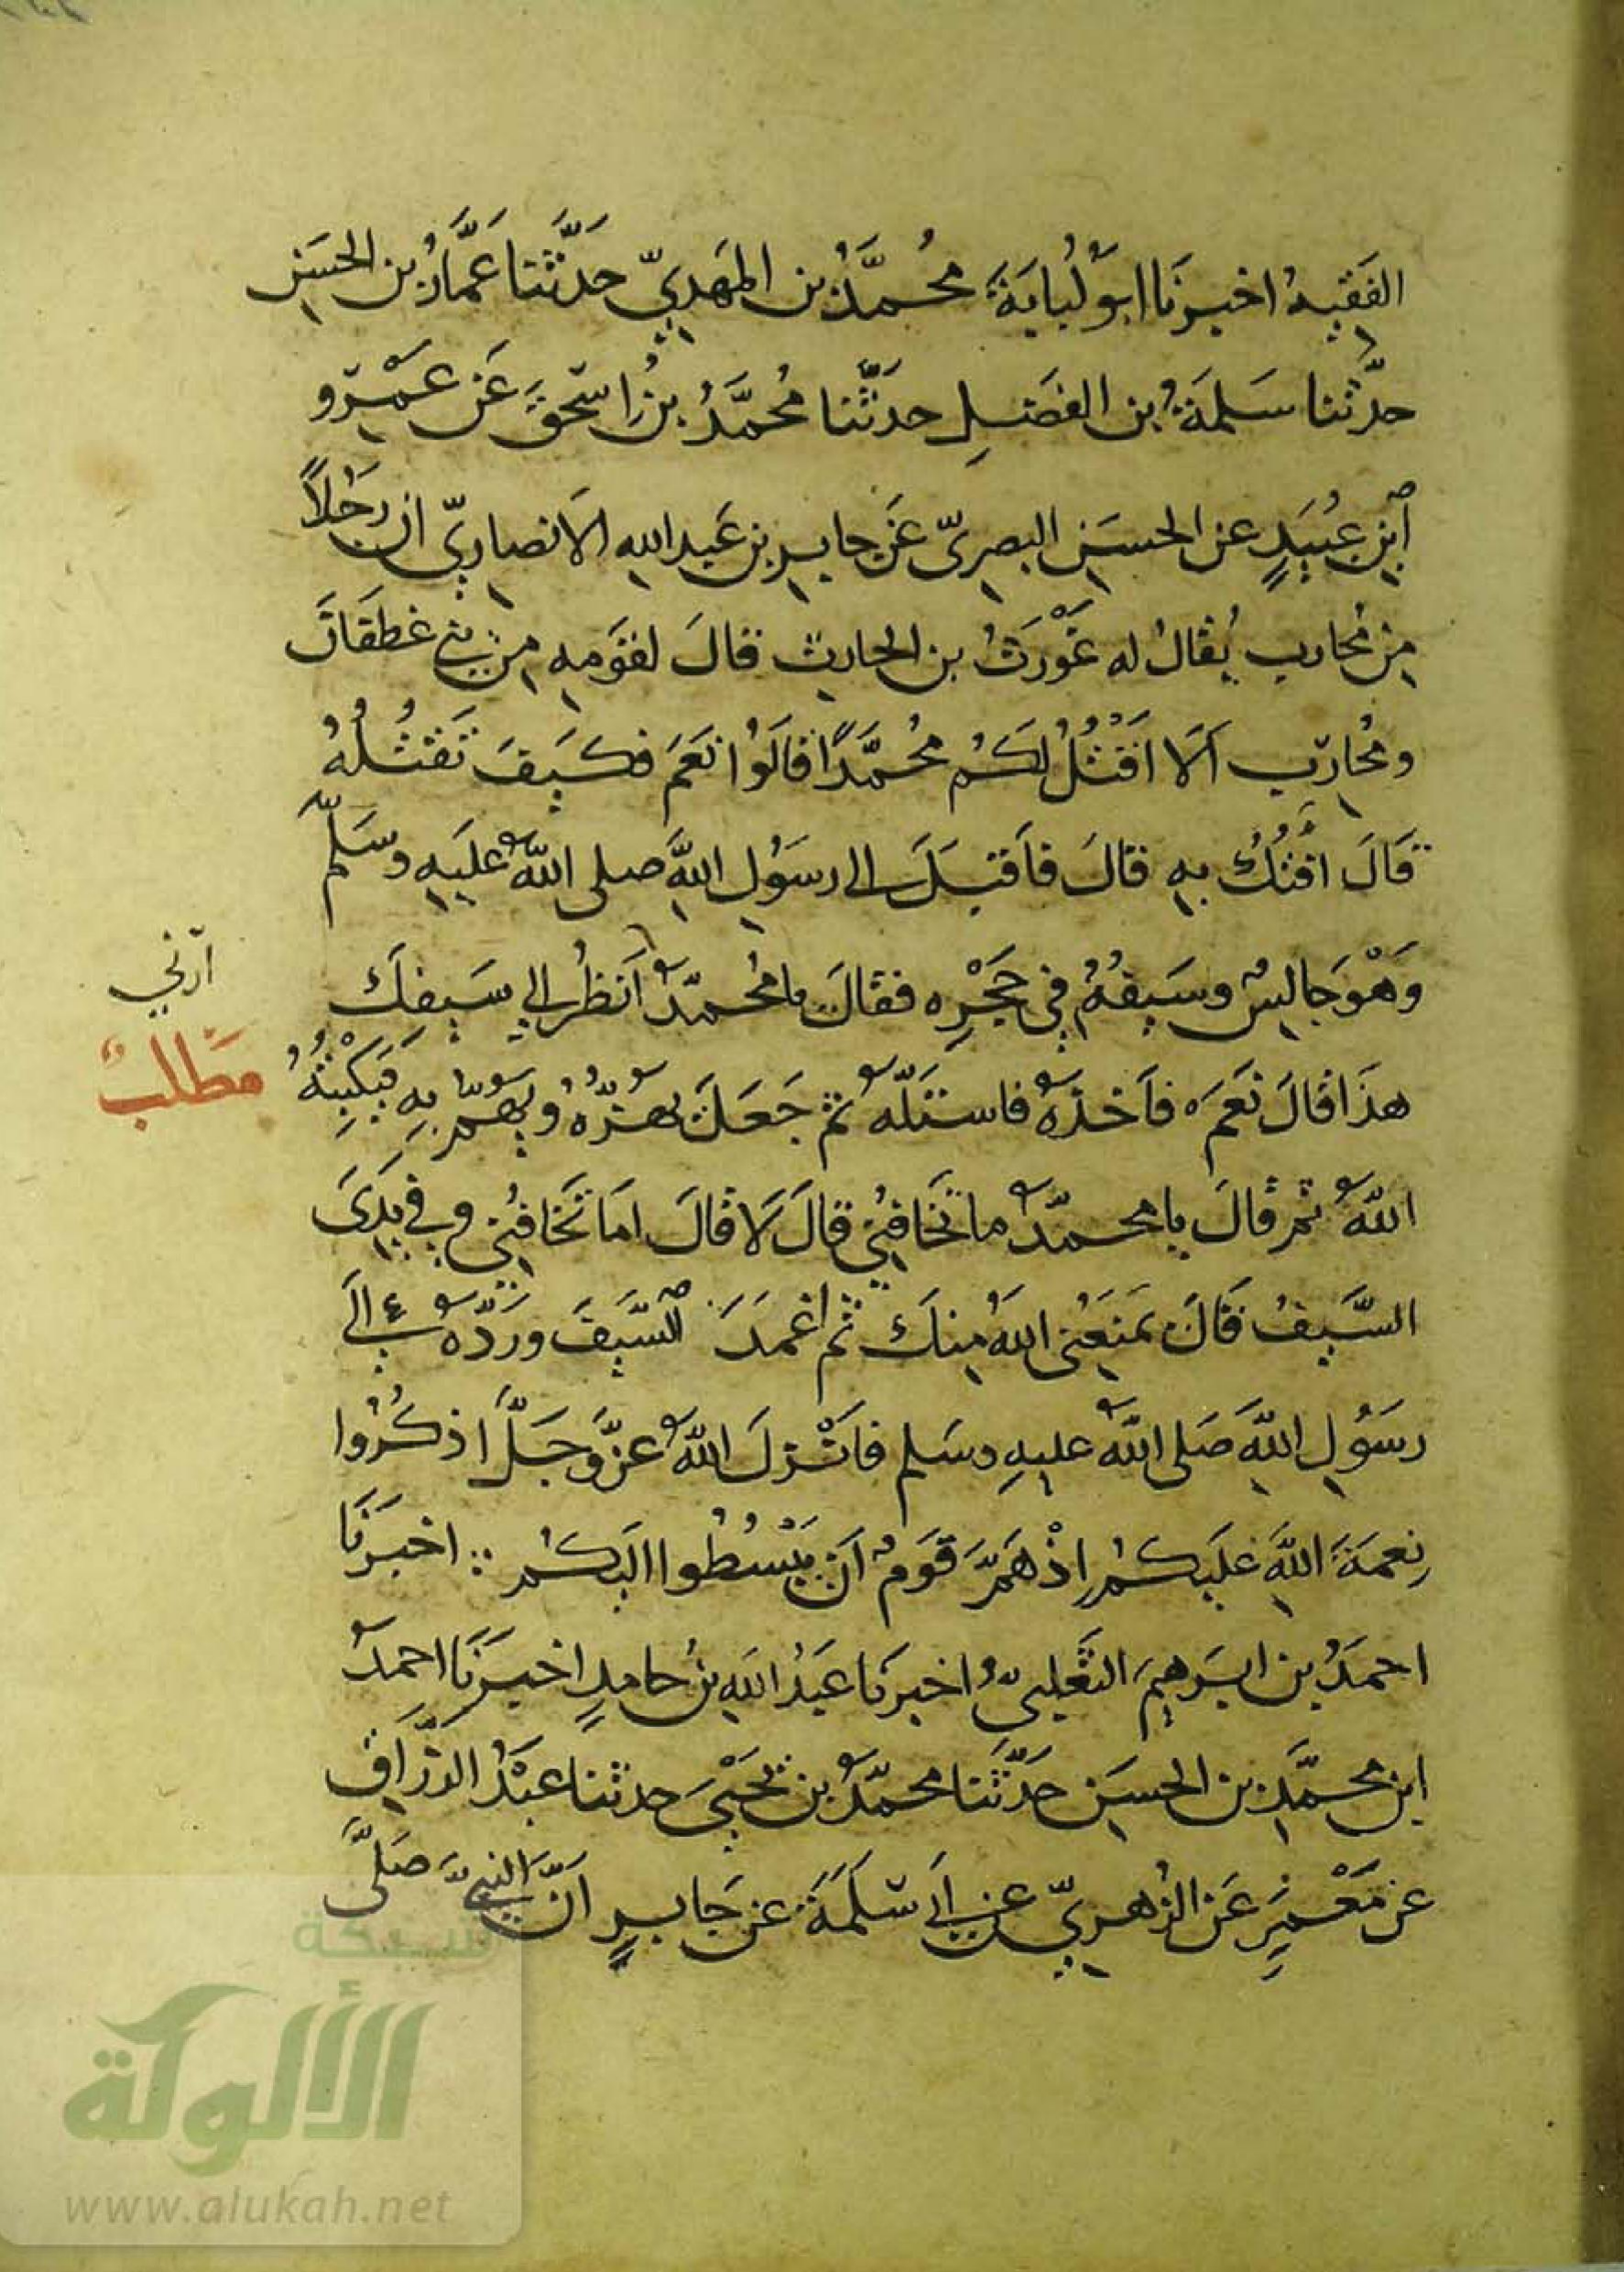 الفَقِيهُ اخبرنَا ابو لُبابَةَ مُحُمَّدُ بن المَهَديِّ حَدَّثَنا عَمَّارُ بن الحسَنِ
حدَّثنا سَلمَةُ بن الفَضلِ حدَثَّنا مُحمَّدُ بنُ اِسحٰقَ عَن عَمْرِو
ابْنِ عُبَيَدٍ عن الحسَنِ البصرِىّ عَن جابِرِ بن عَبدِ اللهِ الاَنصارِيّ ان رَجُلاً
مِن مُحاربِ يُقالُ له غَوْرَثُ بن الحارِثِ قالَ لقَوَمهِ مِن بني غطَفَانَ
ومُحارِبِ اَلَا اَقْتُلُ لكَمُ مُحُمَّدًا قالَوُا نَعَمَ فكَيَفَ تَقتُلُهُ
قَالَ افْتُكُ بهِ قالَ فاَقبَلَ الى رسَوُلِ اللهِ صلى اللهُ عليَهِ وسَلّم
وَهْوَ جَالِسٌ وسَيفُهُ فِي حَجْرِه فقالَ يا مُحمدُّ اَنظُر الي سَيفِكَ
ارَني
مَطْلَبٌ
هذَا قالَ نَعَمَ فاَخذَهُ فاستَلّهُ ثم جَعَلَ يَهُزّهُ ويَهُمّ بِهِ فَيَكْبِتُهُ
اللهُ ثم قالَ يا محمدُّ ما تَخَافُنِي قالَ لَا قالَ امَا تَخَافُنِي وفِي يَدَىَ
السَّيفُ قَالَ يَمنَعُنِى اللهُ مِنكَ ثم اغمَدَ السَّيفَ ورَدّهُ الَى
رسَوُلِ اللهِ صَلى اللهُ عليهِ وسَلم فانْزلَ اللهُ عزَّ وجَلَّ اذكُرُوا
نِعمَةَ اللهِ عَليَكمُ اِذْ هَمَّ قَومٌ اَن يَبْسُطُوا اليَكمُ ∴ اخبَرنَا
احمَدُ بن ابرَهِيمَ الثَعَلبىُّ اخبرنَا عَبدُ اللهِ بنُ حامِدٍ اخبَرنَا احمدُ
ابن محمَّدِ بن الحسَنِ حَدَّثَنا محمّدُ بن يَحْيَى حدثنا عَبْدُ الرَّزَّاقِ
عن مَعْمَرٍ عَن الزُهرِيّ عن اَبي سَلَمَةَ عن جَابرٍ اَنَّ النبيَّ صَلَّى
شبكة
الألوكة
www.alukah.net